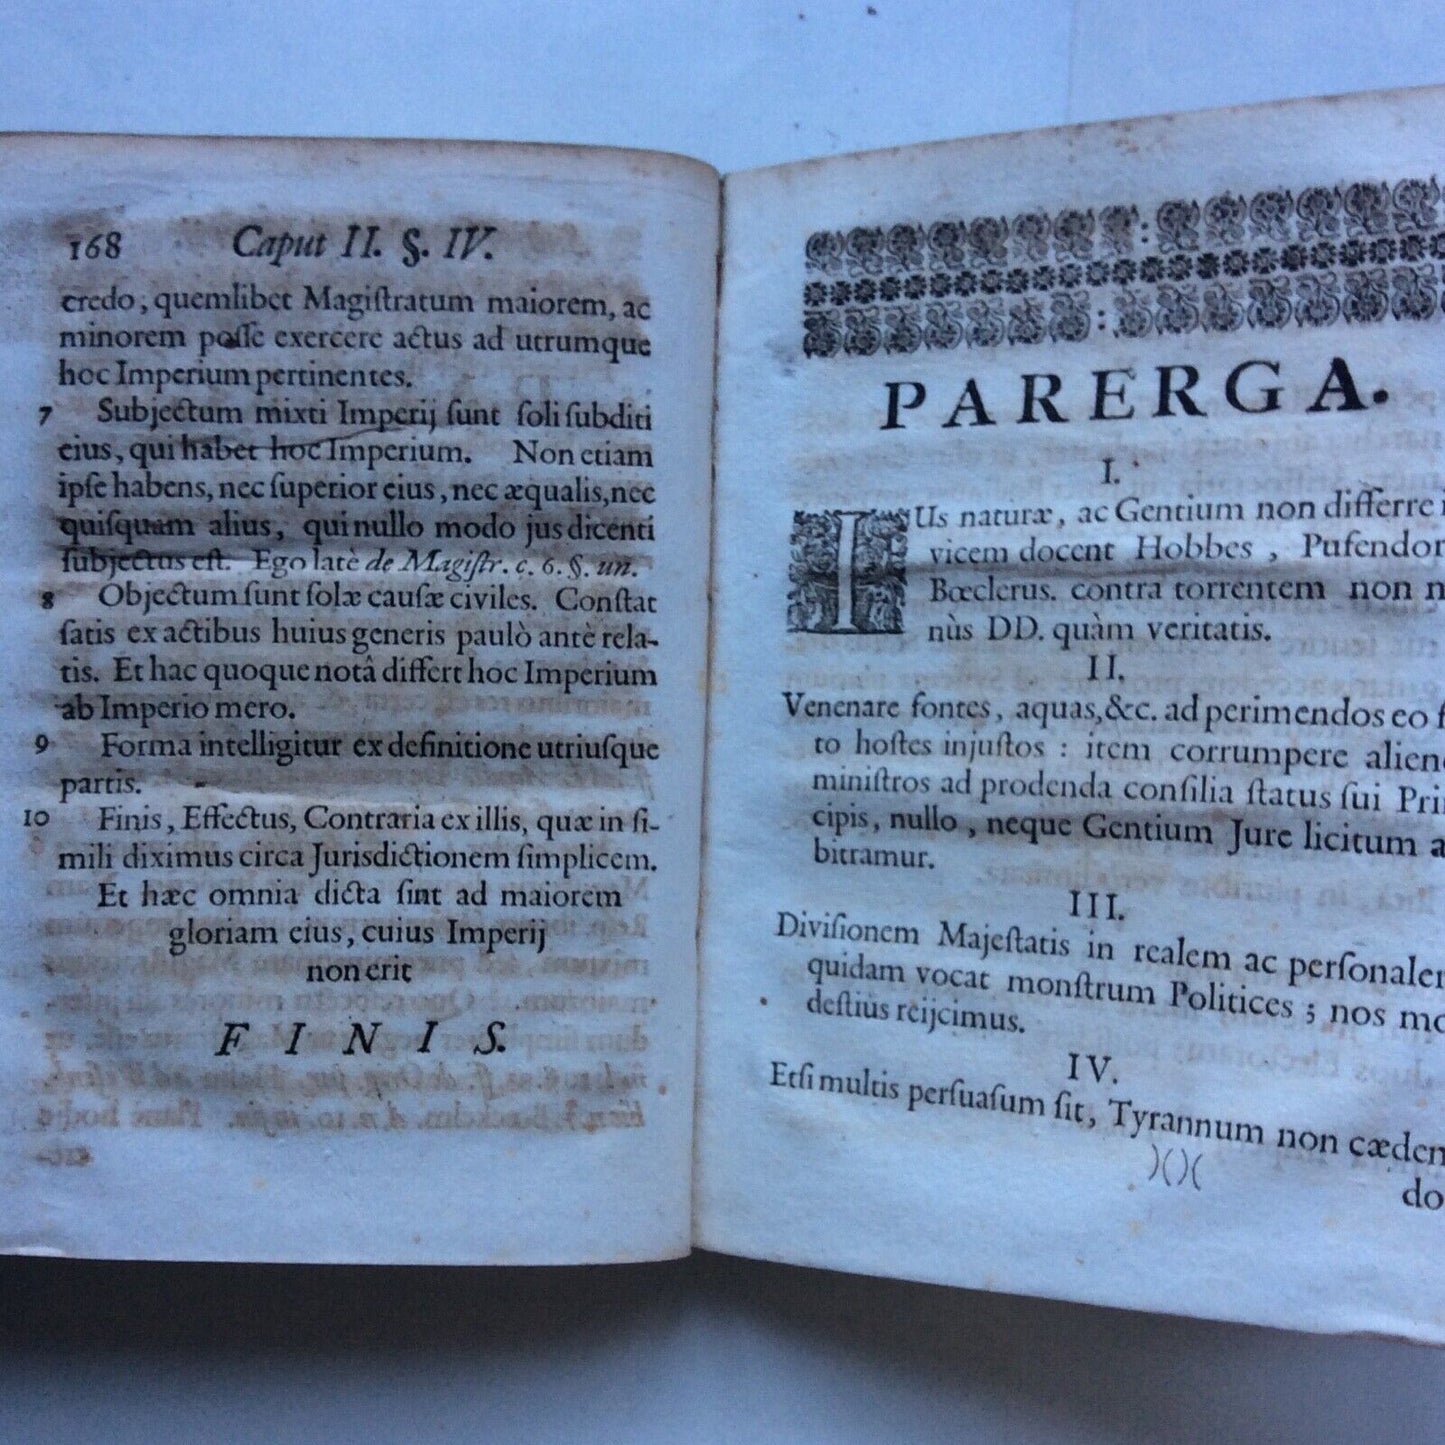 168 Caput II. §. IV.
credo, quemlibet Magiſtratum maiorem, ac
minorem poſſe exercere actus ad utrumque
hoc Imperium pertinentes.
7 Subjectum mixti Imperij ſunt ſoli ſubditi
eius, qui habet hoc Imperium. Non etiam
ipſe habens, nec ſuperior eius, nec æqualis, nec
quiſquam alius, qui nullo modo jus dicenti
ſubjectus eſt. Ego latè de Magiſtr. c. 6. §. un.
8 Objectum ſunt ſolæ cauſæ civiles. Conſtat
ſatis ex actibus huius generis paulò antè rela-
tis. Et hac quoque notâ differt hoc Imperium
ab Imperio mero.
9 Forma intelligitur ex definitione utriuſque
partis.
10 Finis, Effectus, Contraria ex illis, quæ in ſi-
mili diximus circa Jurisdictionem ſimplicem.
Et hæc omnia dicta ſint ad maiorem
gloriam eius, cuius Imperij
non erit
FINIS.
PARERGA.
I.
IUs naturæ, ac Gentium non differre
vicem docent Hobbes, Pufendor
Bœclerus. contra torrentem non
nùs DD. quàm veritatis.
II.
Venenare fontes, aquas, &c. ad perimendos eo
to hoſtes injuſtos : item corrumpere alien
miniſtros ad prodenda conſilia ſtatus ſui Pri
cipis, nullo, neque Gentium Jure licitum a
bitramur.
III.
Diviſionem Majeſtatis in realem ac perſonalem
quidam vocat monſtrum Politices ; nos mo
deſtiùs reijcimus.
IV.
Etſi multis perſuaſum ſit, Tyrannum non cæden
)()(
do